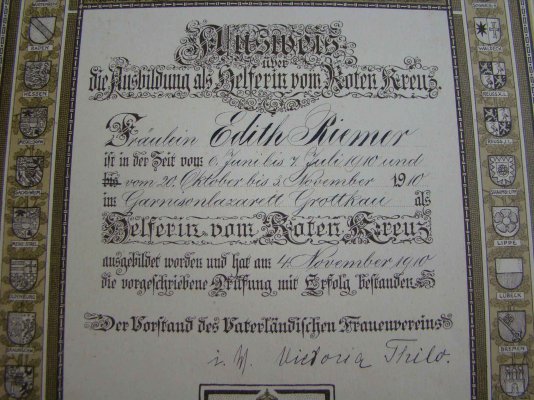 Ausweis
über
die Ausbildung als Helferin vom Roten Kreuz.
Fräulein Edith Riemer
ist in der Zeit vom 6. Juni bis 7. Juli 1910 und
bis vom 20. Oktober bis 3. November 1910
im Garnisonlazarett Grottkau als
Helferin vom Roten Kreuz
ausgebildet worden und hat am 4. November 1910
die vorgeschriebene Prüfung mit Erfolg bestanden.
Der Vorstand des Vaterländischen Frauenvereins
i. V. Victoria Thilo.
BADEN
HESSEN
OLDENBURG
WALDECK
LIPPE
LÜBECK
BREMEN